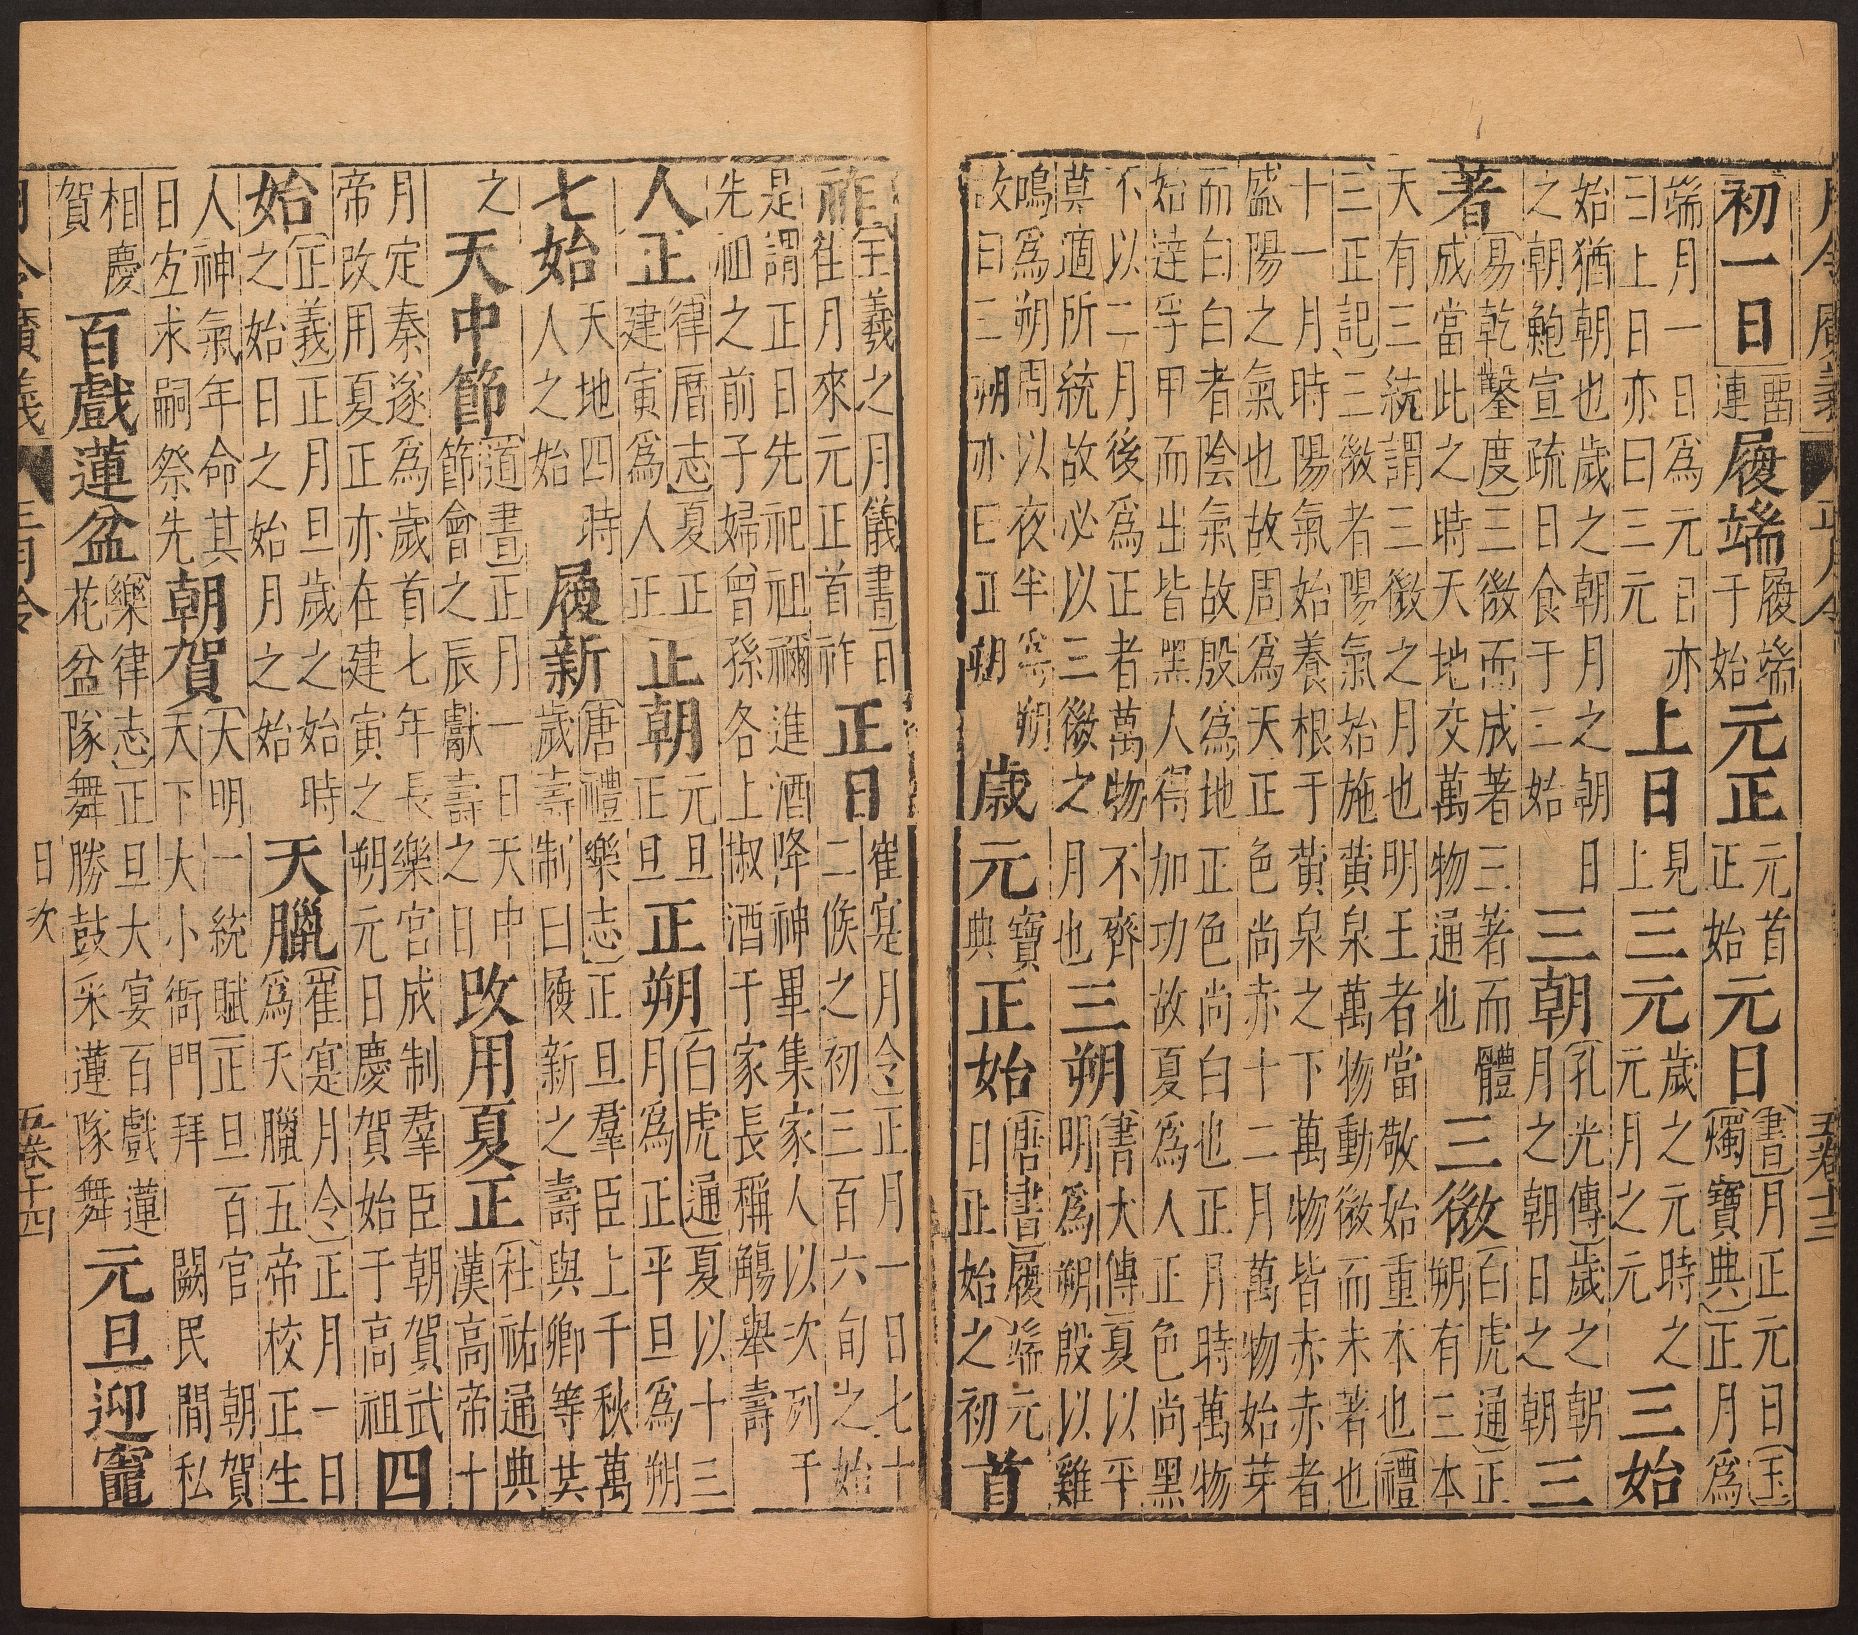 月令廣義 正月令 五卷十三
初一日 履端 履端于始 元正 元首正始 元日 書月正元日玉燭寶典正月為
端月一日為元日亦曰上日亦曰三元 上日 見上 三元 歲之元時之元月之元 三始
始猶朝也歲之朝月之朝日之朝鮑宣疏日食于三始 三朝 孔光傳歲之朝月之朝日之朝 三
著 易乾鑿度三微而成著三著而體成當此之時天地交萬物通也 三微 白虎通正朔有三本
天有三統謂三微之月也明王者當敬始重本也禮三正記三微者陽氣始施黃泉萬物動微而未著也
十一月時陽氣始養根于黃泉之下萬物皆赤赤者盛陽之氣也故周為天正色尚赤十二月萬物始芽
而白白者陰氣故殷為地正色尚白也正月時萬物始達孚甲而出皆黑人得加功故夏為人正色尚黑
不以二月後為正者萬物不齊莫適所統故必以三微之月也 三朔 書大傳夏以平明為朔殷以雞
鳴為朔周以夜半為朔故曰三朔亦曰正朔 歲元 寶典 正始 唐書履端元日正始之初 首
祚 王羲之月儀書日往月來元正首祚 正日 崔寔月令正月一日七十二候之初三百六旬之始
是謂正日先祀祖禰進酒降神畢集家人以次列于先祖之前子婦曾孫各上椒酒于家長稱觴舉壽
人正 律曆志夏正建寅為人正 正朝 元旦正旦 正朔 白虎通夏以十三月為正平旦為朔
七始 天地四時人之始 履新 唐禮樂志正旦羣臣上千秋萬歲壽制曰履新之壽與卿等共
之 天中節 道書正月一日天中節會之辰獻壽之日 改用夏正 杜祐通典漢高帝十
月定秦遂為歲首七年長樂宮成制羣臣朝賀武帝改用夏正亦在建寅之朔元日慶賀始于高祖 四
始 正義正月旦歲之始時之始日之始月之始 天臘 崔寔月令正月一日為天臘五帝校正生
人神氣年命其日宜求嗣祭先 朝賀 大明一統賦正旦百官朝賀天下大小衙門拜闕民間私
相慶賀 百戲蓮盆 樂律志正旦大宴百戲蓮花盆隊舞勝鼓采蓮隊舞 元旦迎竈
月令廣義 正月令 日次 五卷十四